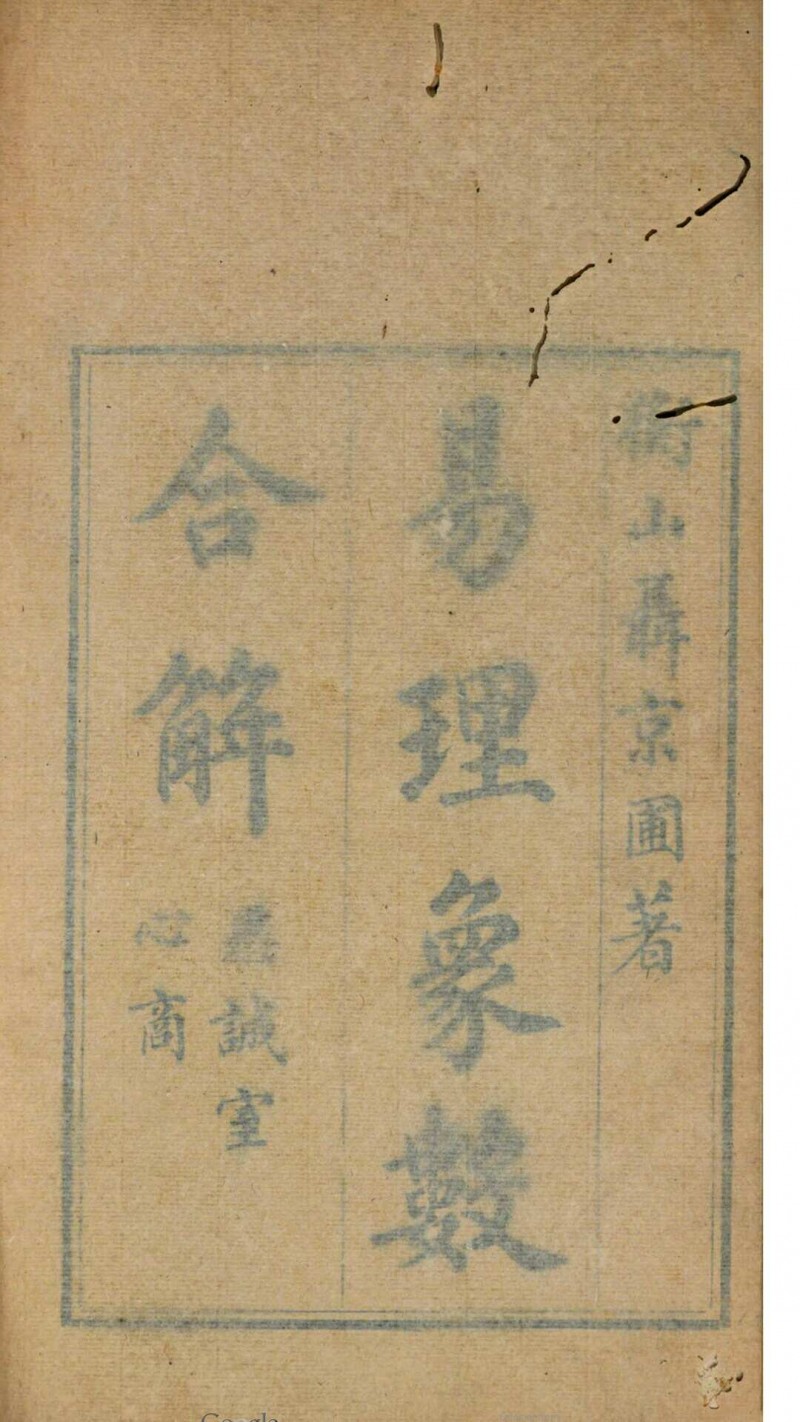 衡山聶京圃著
易理象數
合解
誠室
心商
Google